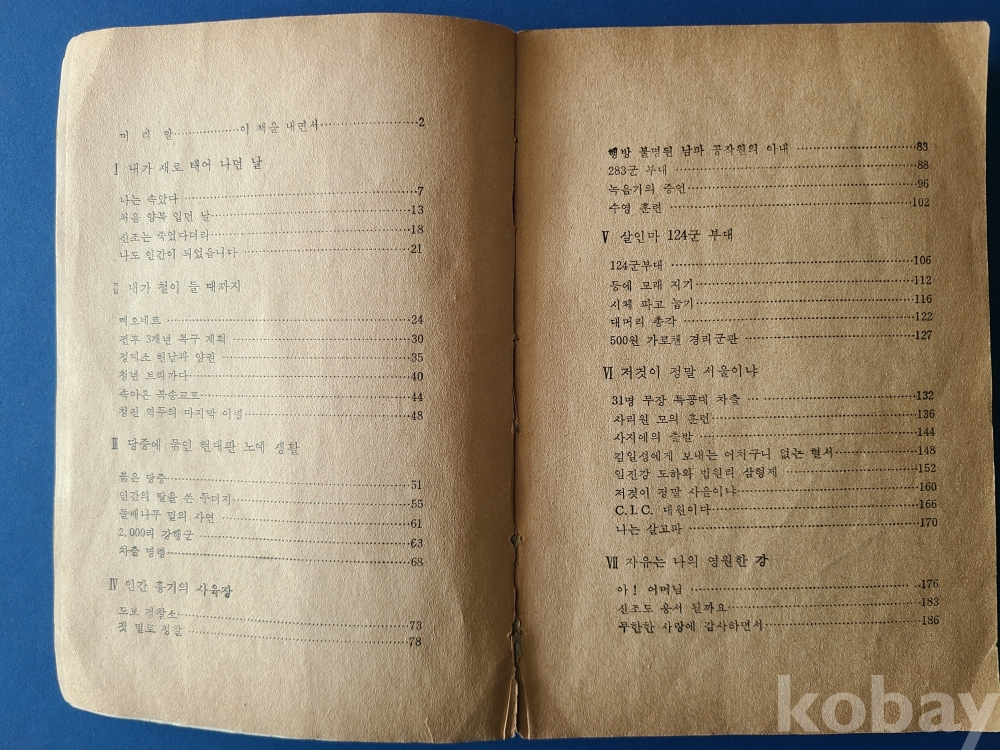 머 리 말 이 책을 내면서 2
Ⅰ 내가 새로 태어 나던 날
나는 속았다 7
처음 양복 입던 날 13
신조는 죽었다더라 18
나도 인간이 되었읍니다 21
Ⅱ 내가 철이 들 때까지
삐오네르 24
전후 3개년 복구 계획 30
정미소 현남파 양권 35
청년 브리가다 40
속아온 북송교포 44
청진 역두의 마지막 이별 48
Ⅲ 당증에 묶인 현대판 노예 생활
붉은 당증 51
인간의 탈을 쓴 두더지 55
돌배나무 밑의 사연 61
2,000리 강행군 63
차출 명령 68
Ⅳ 인간 흉기의 사육장
도보 정찰소 73
첫 밀로 정찰 78
행방 불명된 남파 공작원의 아내 83
283군 부대 88
녹음기의 증언 96
수영 훈련 102
Ⅴ 살인마 124군 부대
124군부대 106
등에 모래 지기 112
시체 파고 눕기 116
대머리 총각 122
500원 가로챈 경리군관 127
Ⅵ 저것이 정말 서울이냐
31명 무장 특공대 차출 132
사리원 모의 훈련 136
사지에의 출발 144
김일성에게 보내는 어처구니 없는 혈서 148
임진강 도하와 법원리 삼형제 152
저것이 정말 서울이냐 160
C.I.C. 대원이다 166
나는 살고파 170
Ⅶ 자유는 나의 영원한 강
아! 어머님 176
신조도 용서 될까요 183
무한한 사랑에 감사하면서 186
kobay